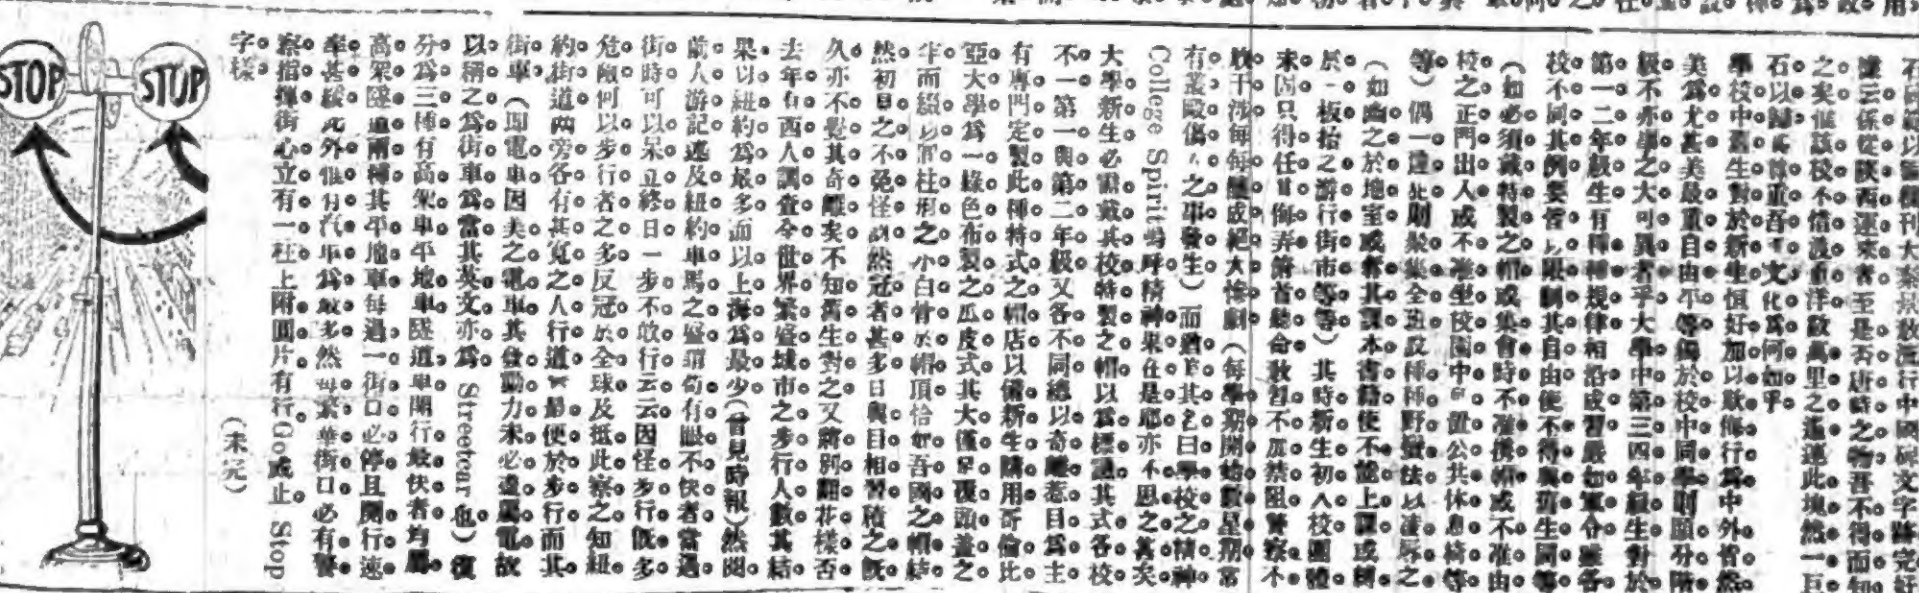 之矣但該校不惜渡重洋數萬里之遙運此塊然一巨
石以歸其尊重吾國文化為何如乎
學校中舊生對於新生恒好加以欺侮行為中外皆然
美為尤甚美最重自由平等獨於校中同學則顯分階
級不亦學之大可異者乎大學中第三四年級生對於
第一二年級生有種種規律相沿成習嚴如軍令雖各
校不同其例要皆以限制其自由使不得與舊生同等
(如必須戴特製之帽或集會時不准携帽或不准由
校之正門出入或不准坐校園中設置公共休息椅等
等)偶一違此則聚集全班設種種野蠻法以凌辱之
(如幽之於地室或奪其課本書籍使不能上課或縛
於一板抬之游行街市等等)其時新生初入校團體
未固只得任其侮弄俯首聽命敎習不加禁阻警察不
敢干涉每每釀成絕大慘劇(每學期開始數星期常
有叢毆傷人之事發生)而猶曰其名曰學校之精神
College Spirit嗚呼精神果在是耶亦不思之甚矣
大學新生必需戴其校特製之帽以為標識其式各校
不一第一與第二年級又各不同總以奇離惹目為主
有專門定製此種特式之帽店以備新生購用哥倫比
亞大學為一綠色布製之瓜皮式其大僅足覆頭蓋之
半而綴以圓柱形之小白骨於帽頂恰如吾國之帽結
然初見之不免怪訝然冠者甚多日與目相習積之既
久亦不覺其奇離矣不知舊生對之又將別翻花樣否
去年有西人調查今世界繁盛城市之步行人數其結
果以紐約為最多而以上海為最少(曾見時報)然閱
前人游記述及紐約車馬之盛謂苟有眼不快者當過
街時可以呆立終日一步不敢行云云因怪步行既多
危險何以步行者之多反冠於全球及抵此察之知紐
約街道兩旁各有甚寬之人行道最便於步行而其
街車(即電車因美之電車其發動力未必盡屬電故
以稱之為街車為當其英文亦為 Streetcar 也)復
分為三種有高架車平地車隧道車開行最快者均屬
高架隧道兩種其平地車每過一街口必停且開行速
率甚緩此外惟有汽車為最多然每繁華街口必有警
察指揮街心立有一柱上附圓片有行Go或止 Stop
字樣
(未完)
STOP
STOP